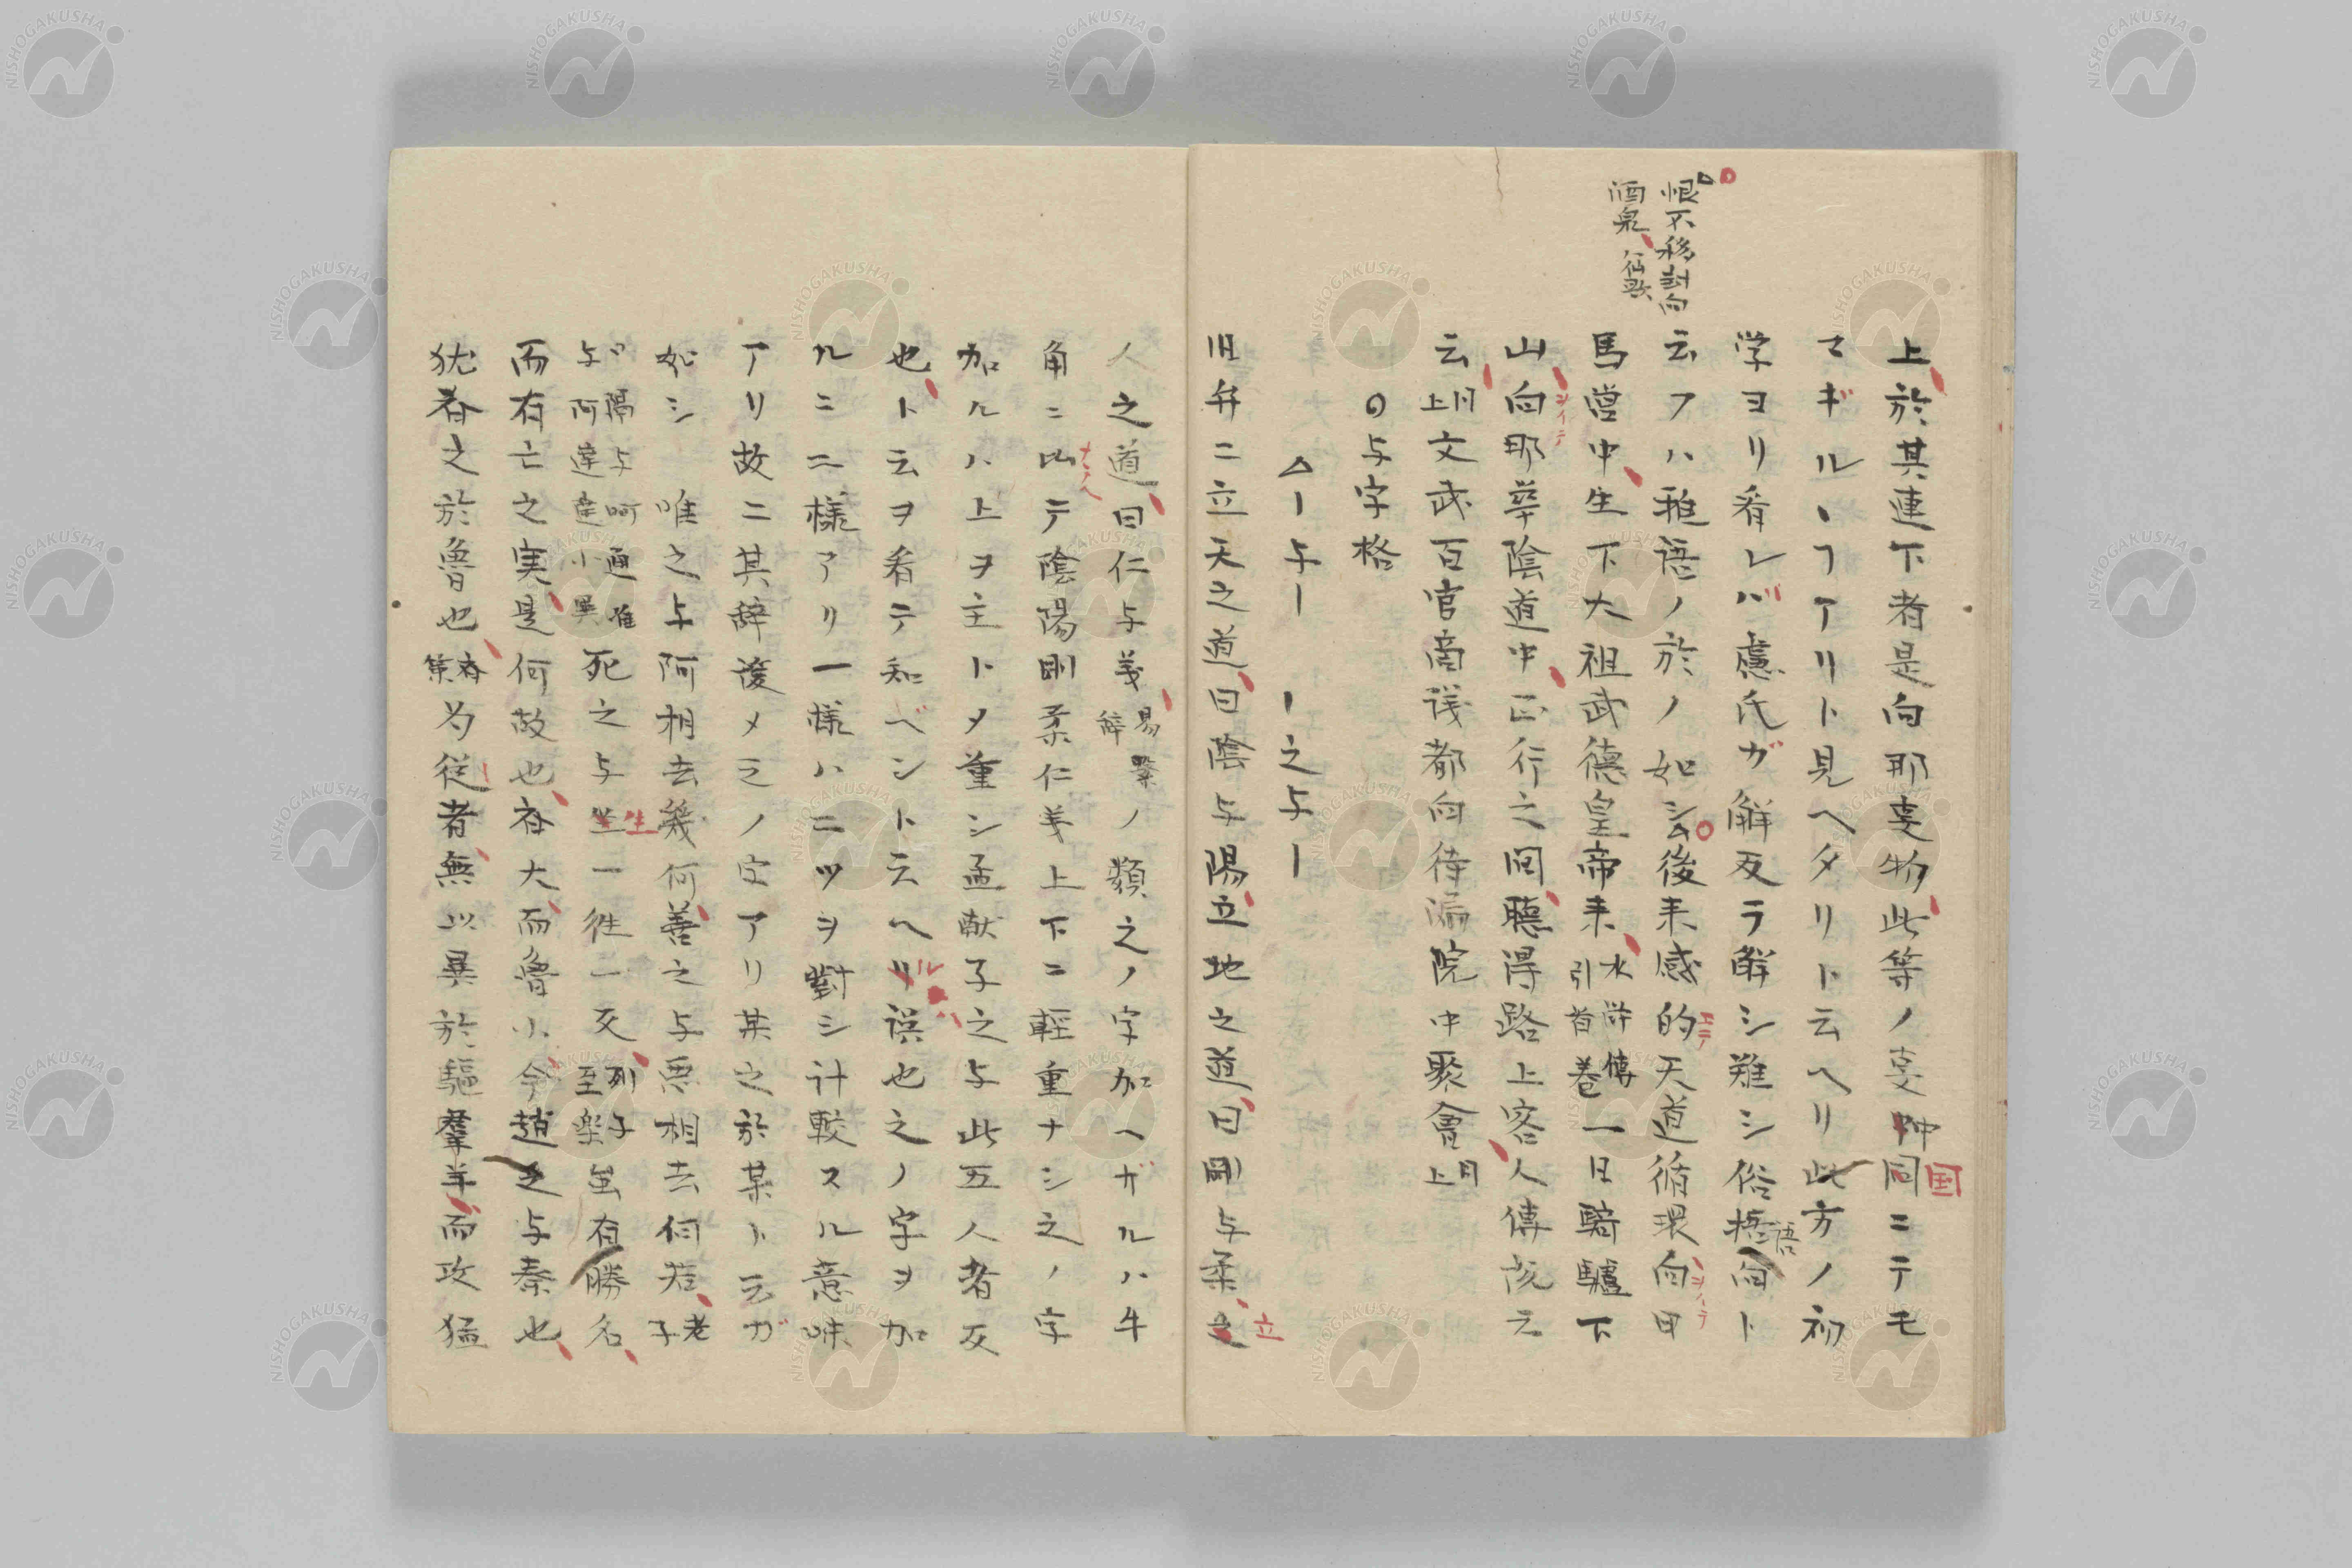 恨不移封向
酒泉 仙歌
上於其連下者是向那㕝物此等ノ㕝
同ニテモ国
マギルヽフアリト見ヘタリト云ヘリ此方ノ初
学ヨリ看レバ慮氏ガ解反ラ解シ難シ俗語向ト
云フハ雅語ノ於ノ如シ後来感的エテ天道循環向ヲイテ甲
馬営中生下大祖武徳皇帝来水滸傳引首巻一日騎驢下
山向ヲイテ那華陰道中正行之間聴得路上客人傳説云
云上同文武百官商議都向待漏院中聚會上同
○与字格
△ー与ー ー之与ー
旧弁ニ立天之道曰陰与陽立地之道曰剛与柔立
人之道曰仁与義易繋辞ノ類之ノ字加ヘザルハ牛
角ニ乄陰陽剛柔仁義上下ニ軽重ナシ之ノ字
加ルハ上ヲ主ト乄重シ孟献子之与此五人者友
也ト云ヲ看テ知ベシト云ヘル誤也之ノ字ヲ加
ルニ二様アリ一様ハニツヲ對シ計較スル意味
アリ故ニ其辞後ノ字アリ某之於某ト云ガ
如シ 唯之与阿相去幾何善之与悪相去何若老子
死之与生一往一反列子 至楽 有勝名
而有亡之実是何故也呑大而魯小今趙之与秦也
猶呑之於魯也 為従者無以異於驅羣羊而攻猛